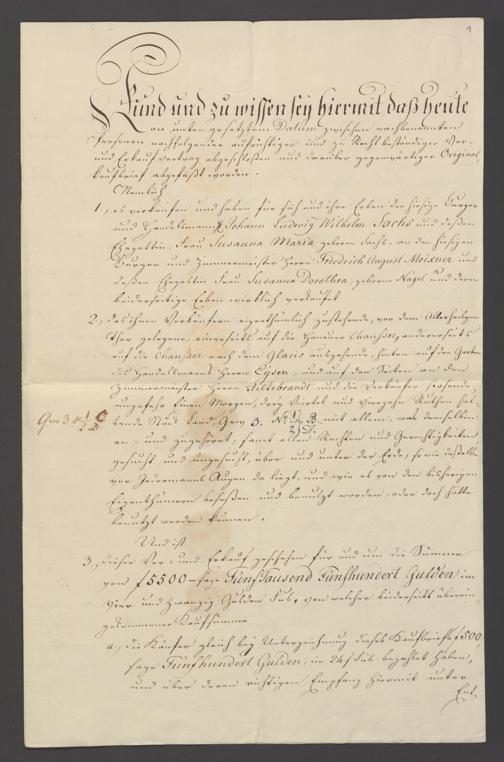 1
Kund und zu wissen sey hiermit daß heute
an unten gesetztem Datum zwischen nachbenannten
Personen nachfolgender aufrichtiger und zu Recht beständiger Ver-
und Erkauf vertrag abgeschlossen und darüber gegenwärtiger Original
kaufbrief abgefaßt worden.
Nemlich
1, es verkaufen und haben für sich und ihre Erben der hiesige Burger
und Handelsmann Johann Ludwig Wilhelm Sachs und dessen
Ehegattin, Frau Susanna Maria geborne Sachs, an den hiesigen
Burger und Zimmermeister Herrn Friedrich August Meixner und
deßen Ehegattin Frau Susanna Dorothea, geborne Nagel und deren
beiderseitige Erben wirklich verkauft
2, das ihnen Verkäufern eigenthümlich zustehende, vor dem Allerheiligen
Thor gelegene, einerseits auf die Hanauer Chaussee, anderseits
auf die Chaussee nach dem Glacis ausgehende, hinten auf den Garten
des Handelsmanns Herrn Eysen, und auf den Seiten an den
Zimmermeister Herrn Hildebrandt und die Verkäufer stosende
ungefehr Einen Morgen, drey Viertel und vierzehn Ruthen hal-
Gew 3 № 1 C
2 D
tende Stück Land, Gew 3. № 1 B
2 D. mit allem, was demselben
an- und zugehöret, samt allen Rechten und Gerechtigkeiten
gesucht und ungesucht, über und unter der Erde, so wie dasselbe
vor Jedermanns Augen da liegt, und wie es von den bisherigen
Eigenthümern besessen und benutzt worden, oder doch hätte
benutzt werden können.
Und ist
3, dieser Ver- und Erkauf geschehen für und um die Summe
von f 5500 – sage Fünf Tausend Fünfhundert Gulden im
vier und zwanzig Gulden Fus, von welcher beiderseits überein
gekommener Kaufsumme
a, die Käufer gleich bey Unterzeichnung dieses Kaufbriefs f 500
sage Fünfhundert Gulden, im 24 f Fus bezahlt haben,
und über deren richtigen Empfang hiermit unter
Ent-